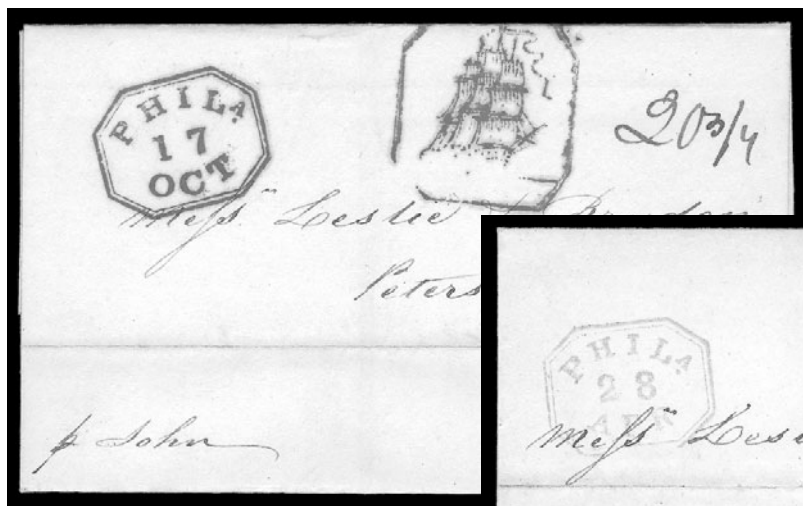 PHILA
17
OCT
20 3/4
Mess. Leslie
Peters
p John
PHILA
28
APR
Mess. Lesl